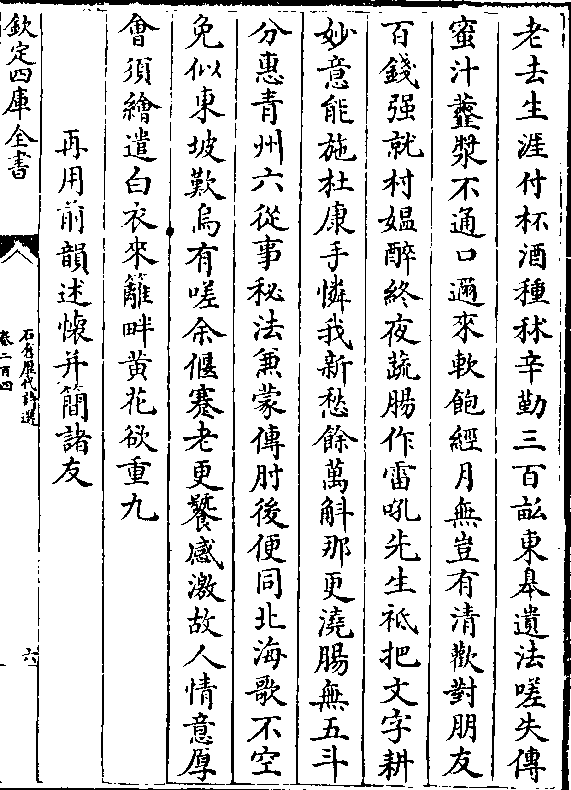 老去生涯付杯酒種秫辛勤三百畝東臯遺法嗟失傳
蜜汁虀漿不通口邇來軟飽經月無豈有清歡對朋友
百錢强就村媼醉終夜蔬腸作雷吼先生祗把文字耕
妙意能施杜康手憐我新愁餘萬斛那更澆腸無五斗
分惠青州六從事秘法兼蒙傳肘後便同北海歌不空
免似東坡歎烏有嗟余偃蹇老更饕感激故人情意厚
會須繪遣白衣來籬畔黄花欲重九
再用前韻述懷并簡諸友
欽定四庫全書
石倉歷代詩選
卷二百四
六